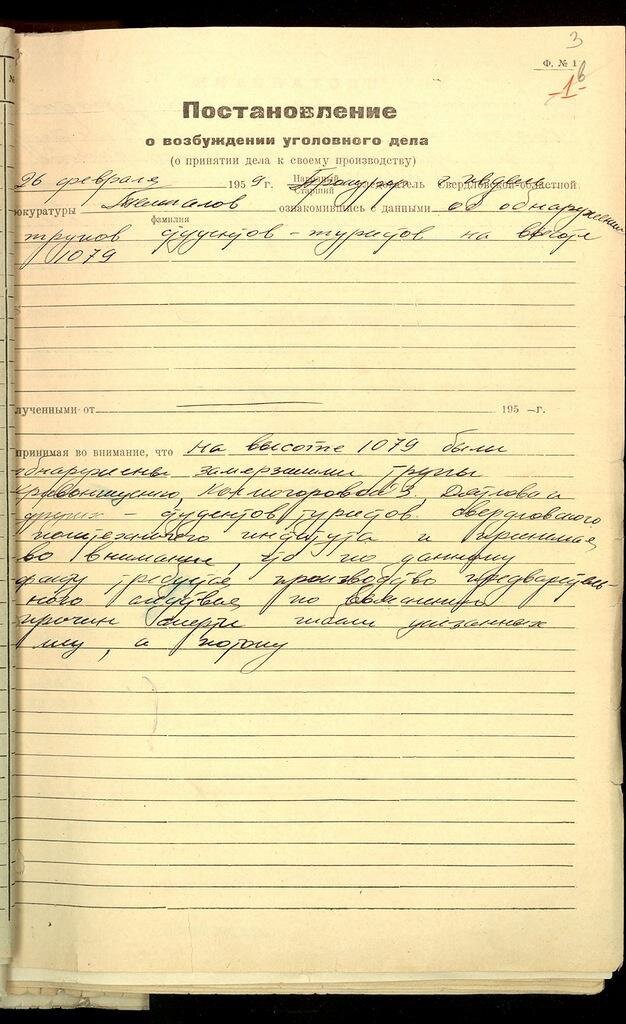 3
Ф. № 1
-1-
Постановление
о возбуждении уголовного дела
(о принятии дела к своему производству)
26 февраля 1959 г. Прокурор г. Ивдель Свердловской областной
рокуратуры Темпалов ознакомившись с данными об обнаружении
фамилия
трупов студентов-туристов на высоте
1079
лученными от 195 – г.
принимая во внимание, что на высоте 1079 были
обнаружены замерзшими трупы
Кривонищенко, Колмогоровой З., Дятлова и
других – студентов туристов свердловского
политехнического института и принимая
во внимание, что по данному
факту требуется производство предваритель-
ного следствия по
причин смерти гибели указанных
лиц, а потому